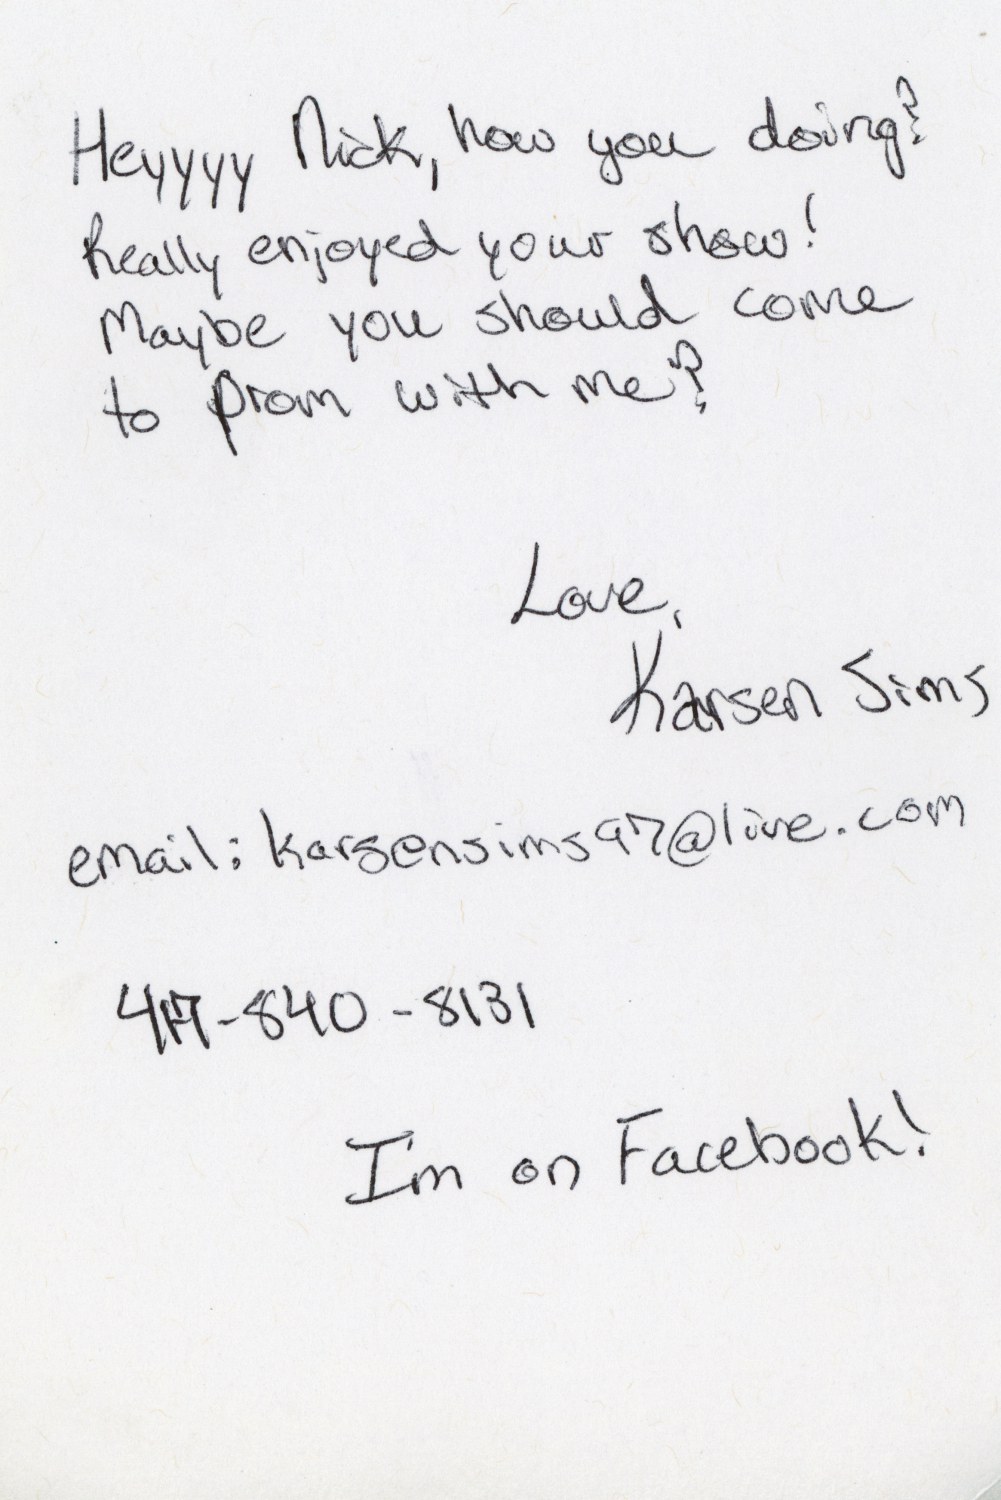 Heyyyy Nick, how you doing?
Really enjoyed your show!
Maybe you should come
to prom with me?
Love,
Karsen Sims
email: karsensims97@live.com
417-840-8131
I'm on Facebook!